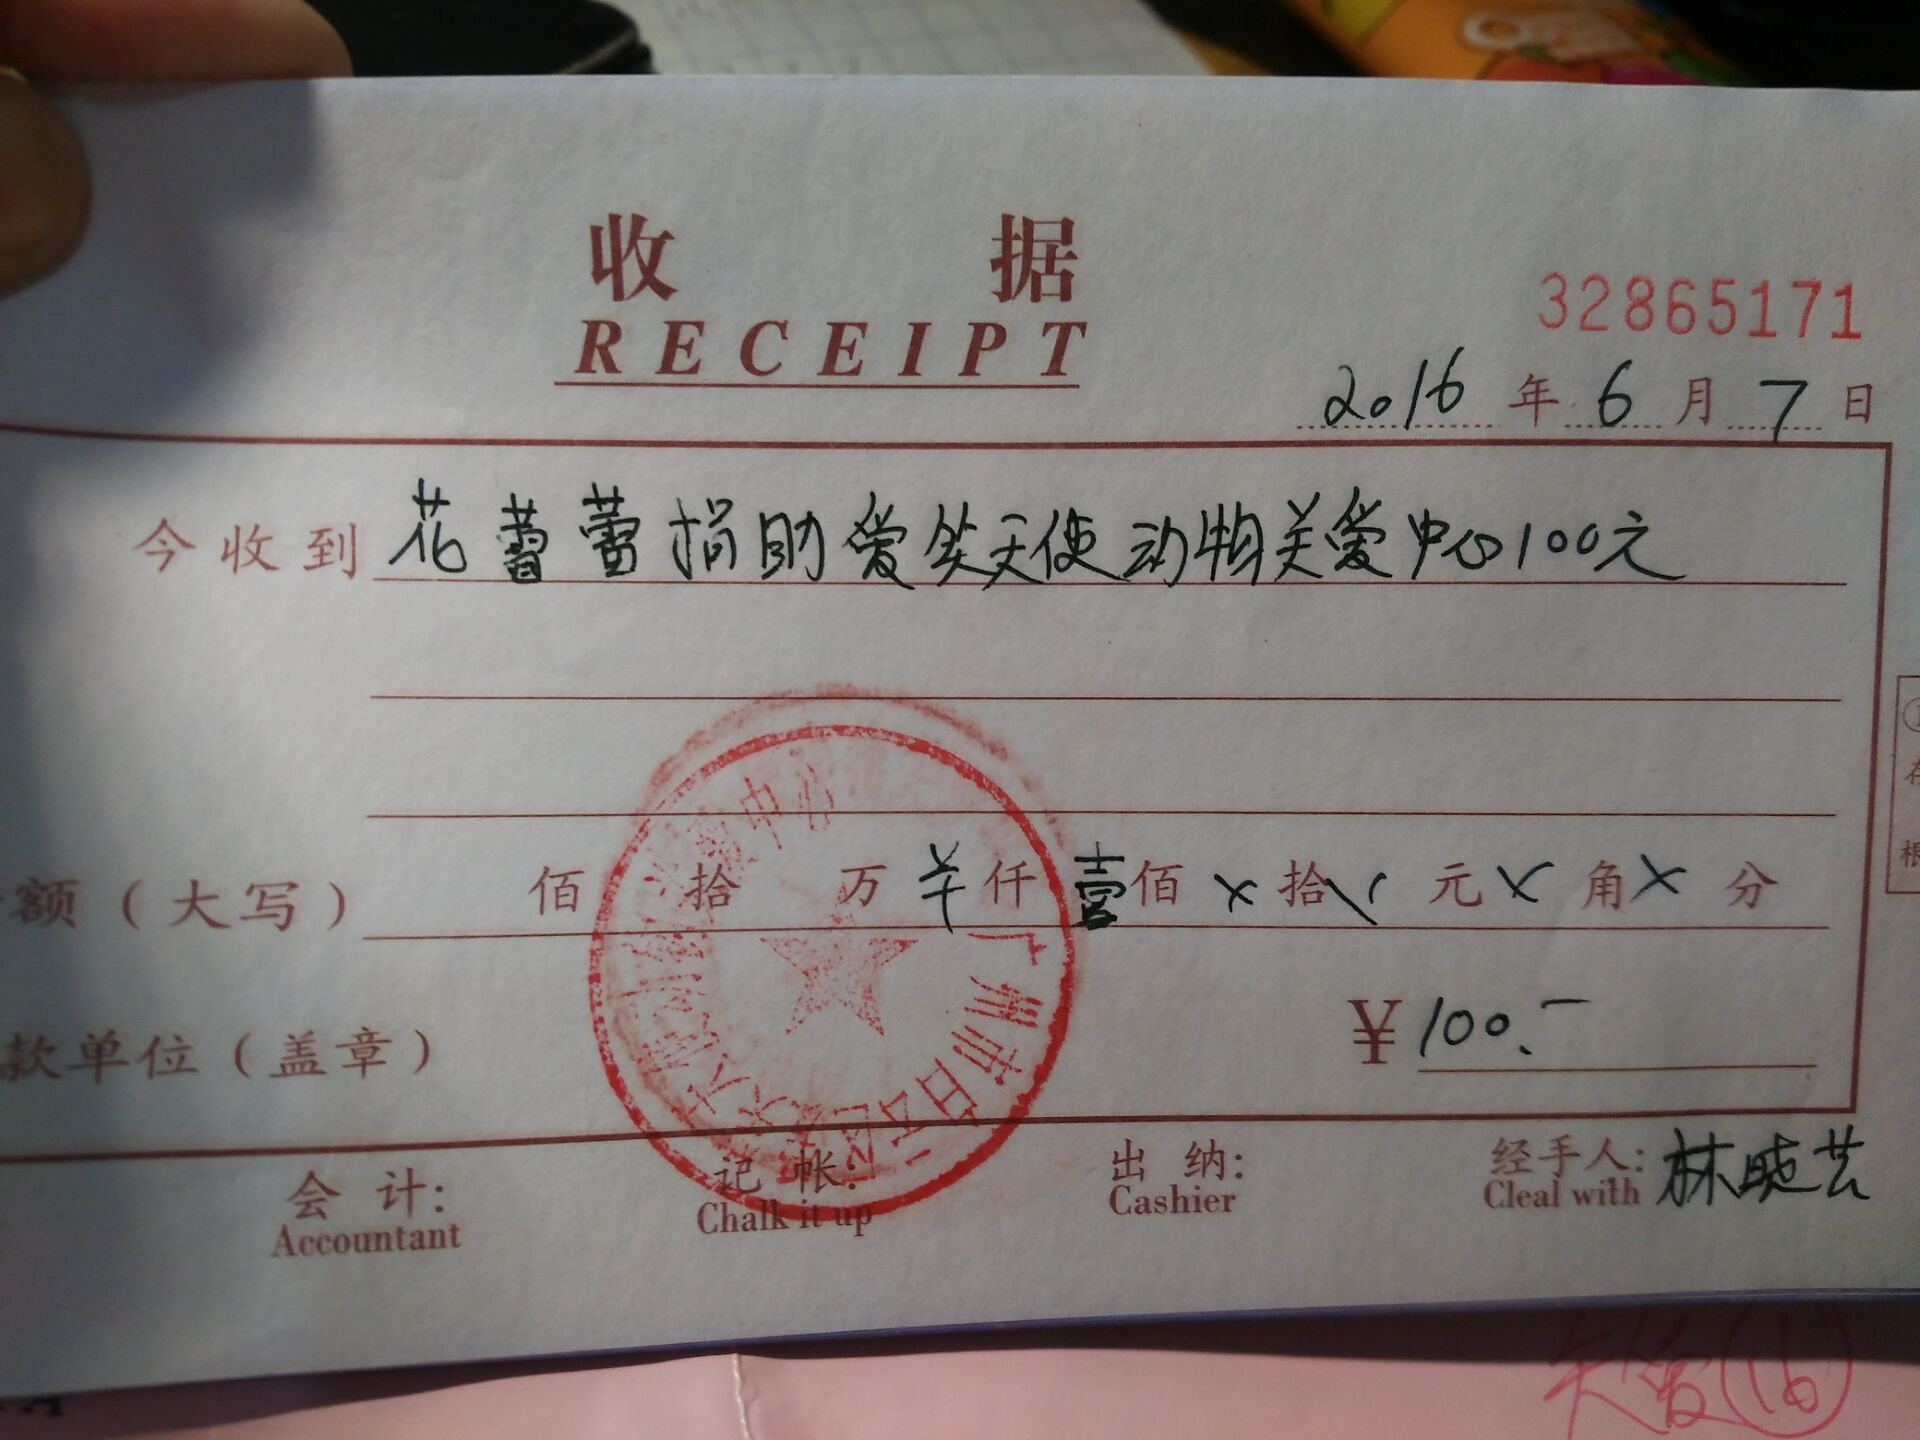 收据
RECEIPT
32865171
2016年6月7日
今收到 花蕾蕾捐助爱笑天使动物关爱中心100元
额（大写） 佰 拾 万 羊仟 壹佰 x 拾 x 元 x 角 x 分
款单位（盖章） ¥100.-
广州市白云区爱笑天使动物关爱中心
会计: 记帐: 出纳: 经手人: 林晓芸
Accountant Chalk it up Cashier Cleal with
存
根
16